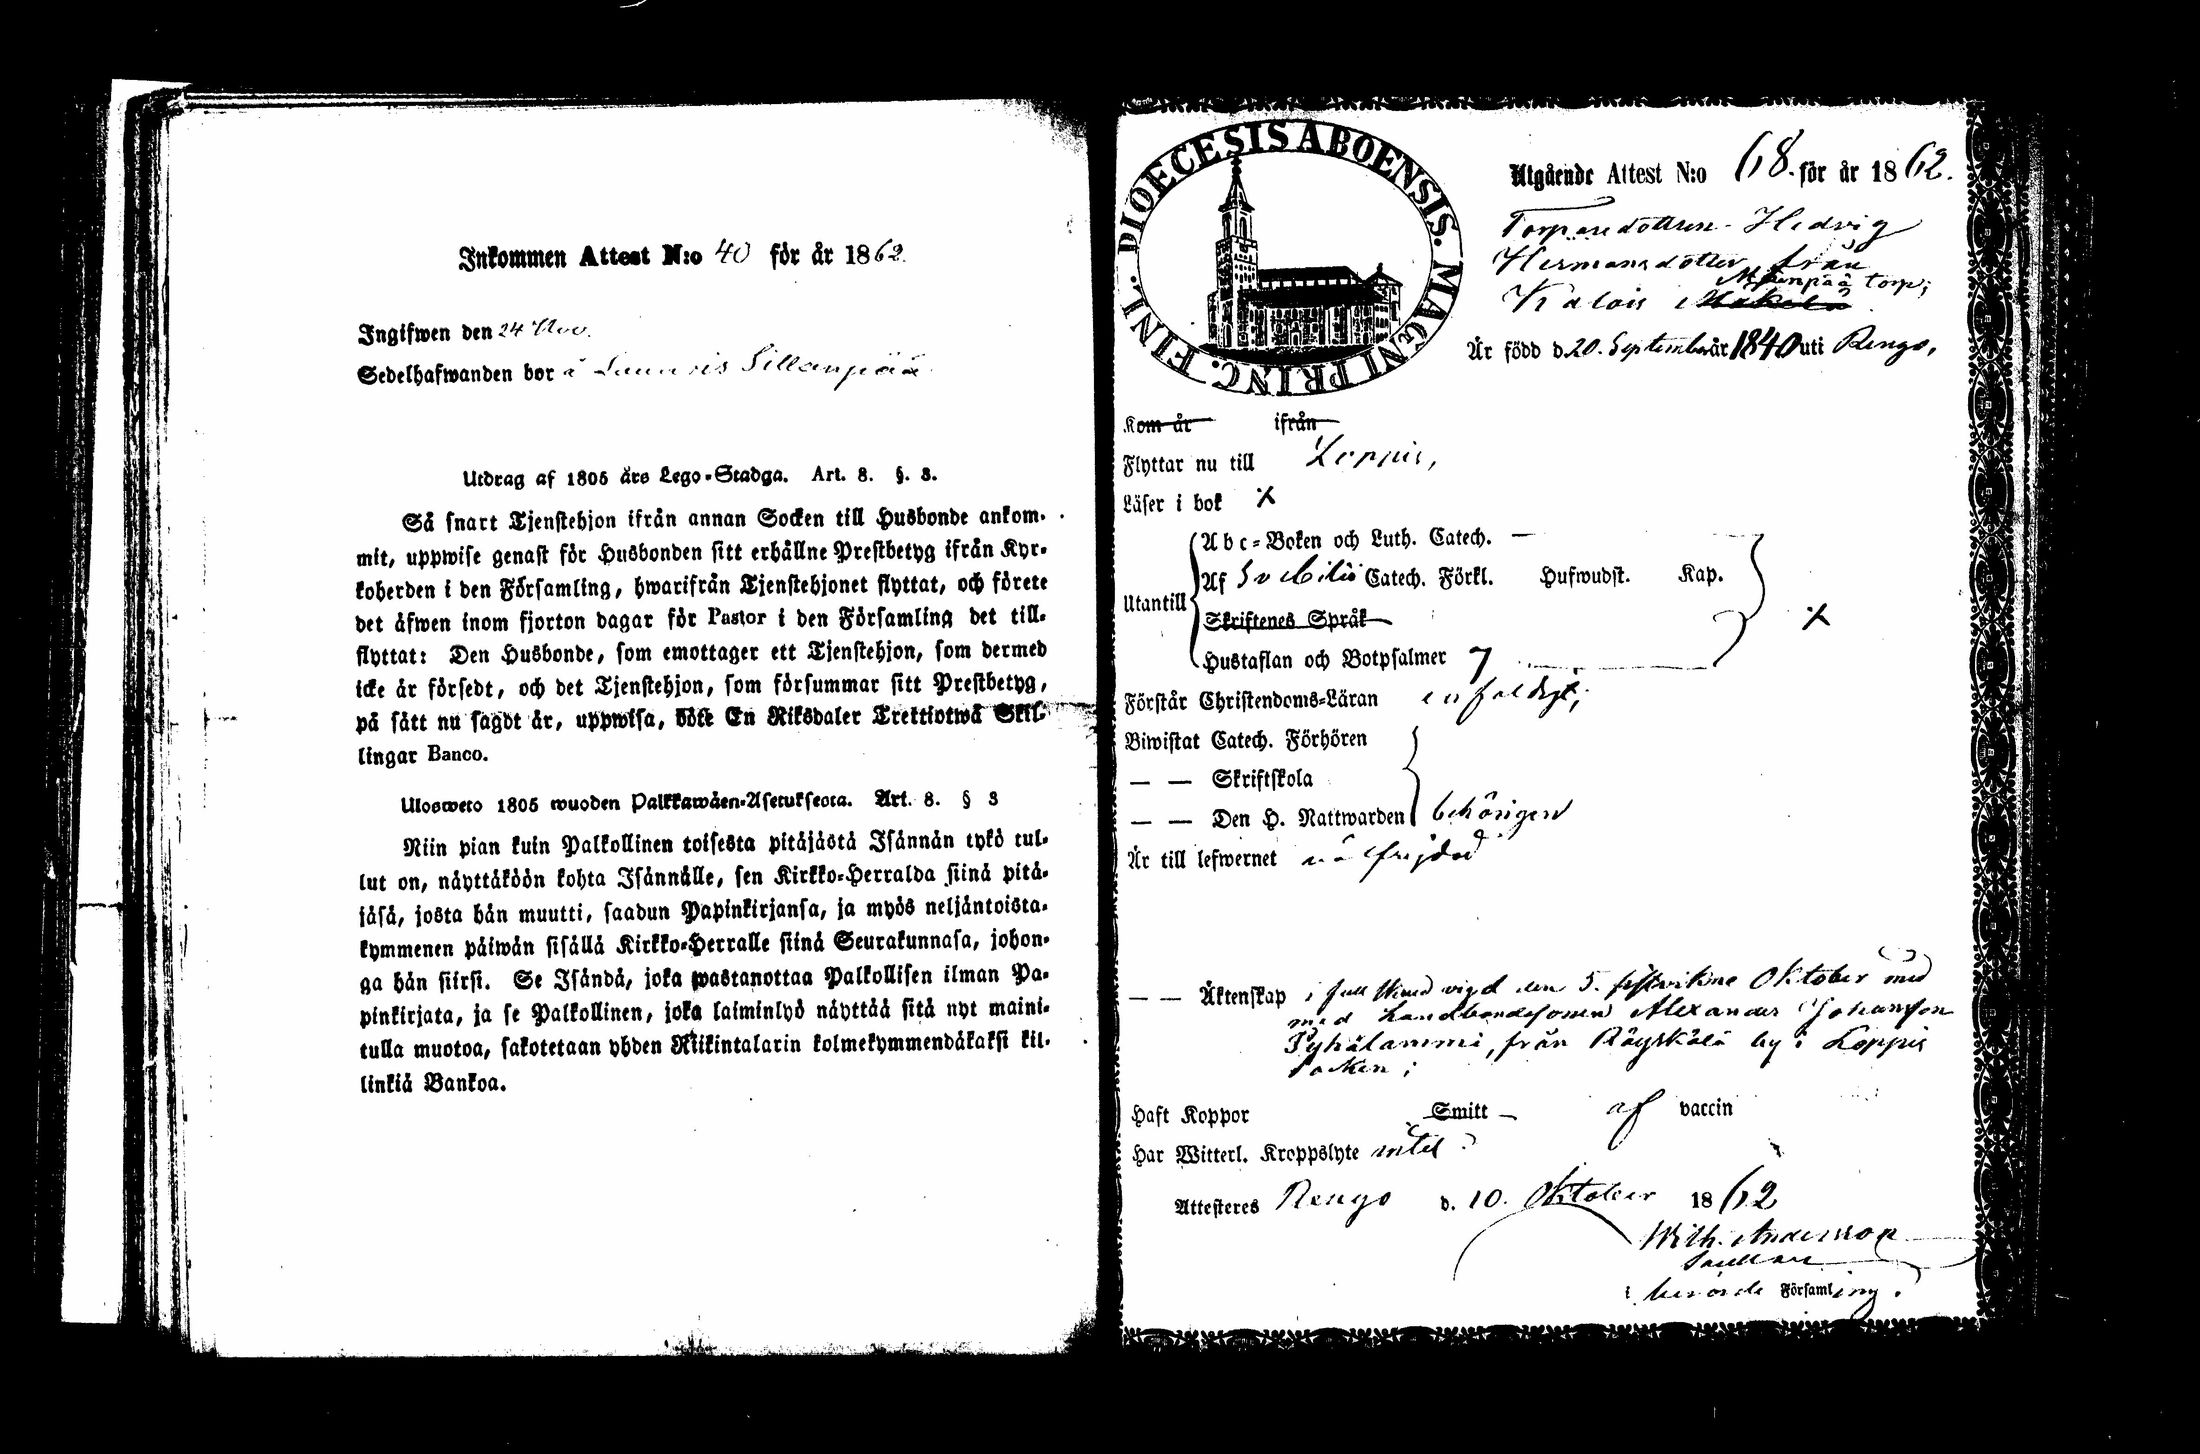 Inkommen Attest N:o 40 för år 1862.
Ingifwen den 24 Nov.
Sedelhafwanden bor å Launois Sillanpää
Utdrag af 1805 års Lego-Stadga. Art. 8. §. 3.
Så snart Tjenstehjon ifrån annan Socken till Husbonde ankom-
mit, uppwise genast för Husbonden sitt erhållne Prestbetyg ifrån Kyr-
koherden i den Församling, hwarifrån Tjenstehjonet flyttat, och förete
det äfwen inom fjorton dagar för Pastor i den Församling det till-
flyttat: Den Husbonde, som emottager ett Tjenstehjon, som dermed
icke är försedt, och det Tjenstehjon, som försummar sitt Prestbetyg,
på sätt nu sagdt är, uppwisa, böte En Riksdaler Trettiotwå Skil-
lingar Banco.
Ulosweto 1805 wuoden Palkkawäen-Asetuksesta. Art. 8. § 3
Niin pian kuin Palkollinen toisesta pitäjästä Isännän tykö tul-
lut on, näyttäköön kohta Isännälle, sen Kirkko-Herralda siinä pitä-
jäsä, josta hän muutti, saadun Papinkirjansa, ja myös neljäntoista-
kymmenen päiwän sisällä Kirkko-Herralle siinä Seurakunnasa, johon-
ga hän siirsi. Se Isändä, joka wastanottaa Palkollisen ilman Pa-
pinkirjata, ja se Palkollinen, joka laiminlyö näyttää sitä nyt maini-
tulla muotoa, sakotetaan yhden Riikintalarin kolmekymmendäkaksi kil-
linkiä Bankoa.
DIOECESIS ABOENSIS. MAGNI PRINC. FINL.
Utgående Attest N:o 68. för år 1862.
Torparedottren Hedvig
Hermansdotter från
Kalois torp;
Är född d. 20. September år 1840 uti Rengo,
Kom år ifrån
Flyttar nu till Loppis,
Läser i bok x
Abc-Boken och Luth. Catech. —
Utantill Af Svebilii Catech. Förkl. Hufwudst. Kap.
Skriftenes Språk x
Hustaflan och Botpsalmer 7
Förstår Christendoms-Läran enfaldigt;
Biwistat Catech. Förhören
— — Skriftskola
— — Den H. Nattwarden behörigen
Är till lefwernet välfrejdad
— — Äktenskap i full vigd den 5. Oktober med
med Landbondesonen Alexander Johansson
Pyhälammi, från Räyskälä by i Loppis
socken;
Haft Koppor Smitt af vaccin
Har Witterl. Kroppslyte intet
Attesteres Rengo d. 10. Oktober 1862
Wilh. Andersson
i berörde Församling.